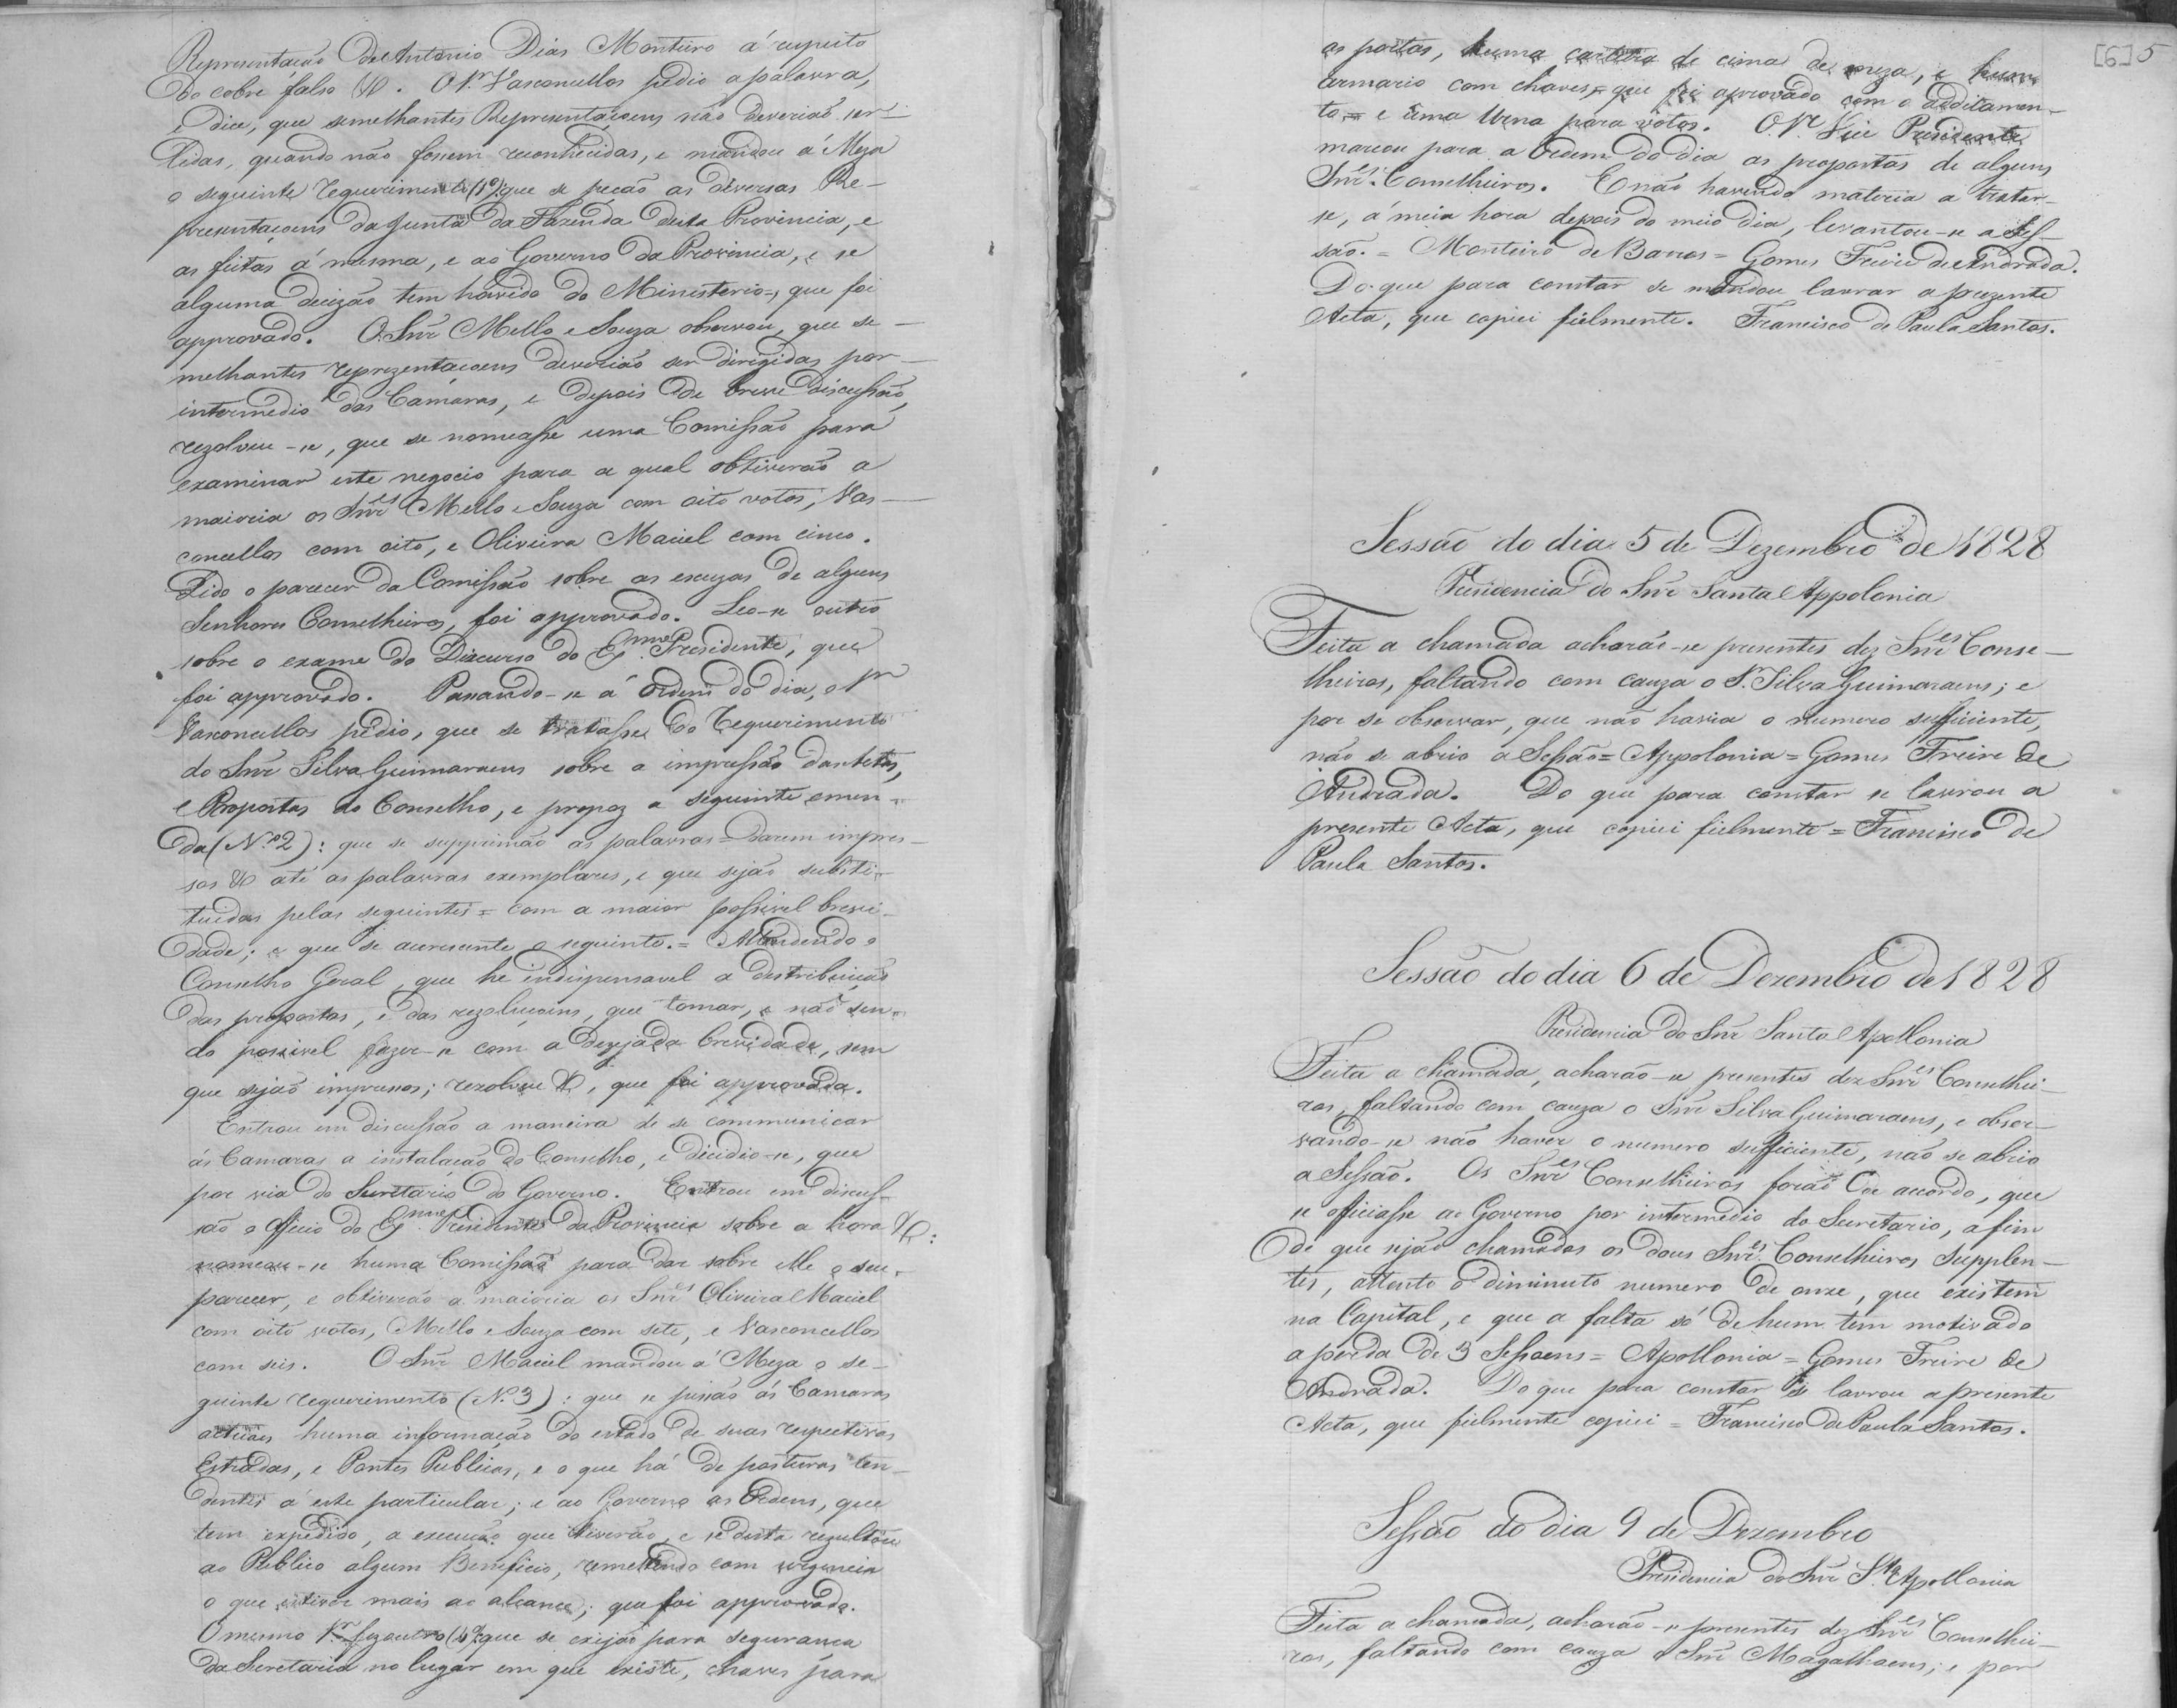 Representação de Antonio Dias Monteiro á respeito
do cobre falso &. O Sr. Vasconcellos pedio a palavra,
e dice, que semelhantes Representaçoens não deverião ser
lidas, quando não fossem reconhecidas, e mandou á Meza
o seguinte requerimento (1º) que se peção as diversas Re-
presentaçoens da Junta da Fazenda desta Provincia, e
as feitas á mesma, e ao Governo da Provincia, e se
alguma decizão tem havido do Ministerio =, que foi
approvado. O Snr Mello e Souza observou, que se-
melhantes reprezentaçoens deverião ser dirigidas por
intermedio das Camaras, e depois de breve discussão,
rezolveu-se, que se nomeasse uma Comissão para
examinar este negocio para a qual obtiverão a
maioria os Snres Mello e Souza com oito votos, Vas-
concellos com oito, e Oliveira Maciel com cinco.
Lido o parecer da Comissão sobre as escuzas de alguns
Senhores Conselheiros, foi approvado. Leo-se outro
sobre o exame do Discurso do Exmo. Presidente, que
foi approvado. Passando-se á Ordem do dia, o Sr
Vasconcellos pedio, que se tratasse do requerimento
do Snr Silva Guimaraens sobre a impressão das Actas,
e Propostas do Conselho, e propoz a seguinte emen-
da (Nº 2): que se supprimão as palavras = darem impres-
sos & até as palavras exemplares, e que sejão substi-
tuidas pelas seguintes = com a maior possivel brevi-
dade; e que se acrescente o seguinte. = Attendendo o
Conselho Geral, que he indispensavel a distribuição
das propostas, e das rezoluçoens, que tomar, e não sen-
do possivel fazer-se com a dezejada brevidade, sem
que sejão impressos; rezolveu &, que foi approvada.
Entrou em discussão a maneira de se communicar
ás Camaras a instalação do Conselho, e decidio-se, que
por via do Secretario do Governo. Entrou em discus-
são o Officio do Exmo. Presidente da Provincia sobre a hora &:
nomeou-se huma Comissão para dar sobre elle o seu
parecer, e obtiverão a maioria os Snres Oliveira Maciel
com oito votos, Mello e Souza com sete, e Vasconcellos
com seis. O Snr Maciel mandou á Meza o se-
guinte requerimento (Nº 3): que se pessão ás Camaras
actuaes huma informação do estado de suas respectivas
Estradas, e Pontes Publicas, e o que há de posturas ten-
dentes á este particular; e ao Governo as Ordens, que
tem expedido, a execução que tiverão, e se desta rezultou
ao Publico algum Beneficio, remettendo com urgencia
o que estiver mais ao alcance; que foi approvado.
O mesmo Sr. fez outro (4º) que se exijão para segurança
da Secretaria no lugar em que existe, chaves para
[6] 5
as portas, huma carteira de cima de meza, e hum
armario com chaves, que foi aprovado com o additamen-
to = e uma Urna para votos. O Sr. Vice Presidente
marcou para a Ordem do dia as propostas de alguns
Snres. Conselheiros. E não havendo materia a tratar-
se, á meia hora depois do meio dia, levantou-se a Ses-
são. = Monteiro de Barros = Gomes Freire de Andrada.
Do que para constar se mandou lavrar a prezente
Acta, que copiei fielmente. Francisco de Paula Santos.
Sessão do dia 5 de Dezembro de 1828
Presidencia do Snr Santa Appolonia
Feita a chamada acharão-se presentes dez Snres Conse-
lheiros, faltando com cauza o Sr. Silva Guimaraens; e
por se observar, que não havia o numero sufficiente,
não se abrio a Sessão = Appolonia = Gomes Freire de
Andrada. Do que para constar se lavrou a
presente Acta, que copiei fielmente = Francisco de
Paula Santos.
Sessão do dia 6 de Dezembro de 1828
Presidencia do Snr Santa Apollonia
Feita a chamada, acharão-se presentes dez Snres Conselhei-
ros, faltando com cauza o Snr Silva Guimaraens, e obser-
vando-se não haver o numero sufficiente, não se abrio
a Sessão. Os Snres Conselheiros forão de acordo, que
se officiasse ao Governo por intermedio do Secretario, afim
de que sejão chamados os dous Snres Conselheiros Supplen-
tes, attento o diminuto numero de onze, que existem
na Capital, e que a falta só de hum tem motivado
a perda de 3 Sessoens = Apollonia = Gomes Freire de
Andrada. Do que para constar se lavrou a presente
Acta, que fielmente copiei = Francisco de Paula Santos.
Sessão do dia 9 de Dezembro
Presidencia do Snr Sta Apollonia
Feita a chamada, acharão-se presentes dez Snres Conselhei-
ros, faltando com cauza o Snr Magalhaens; e por